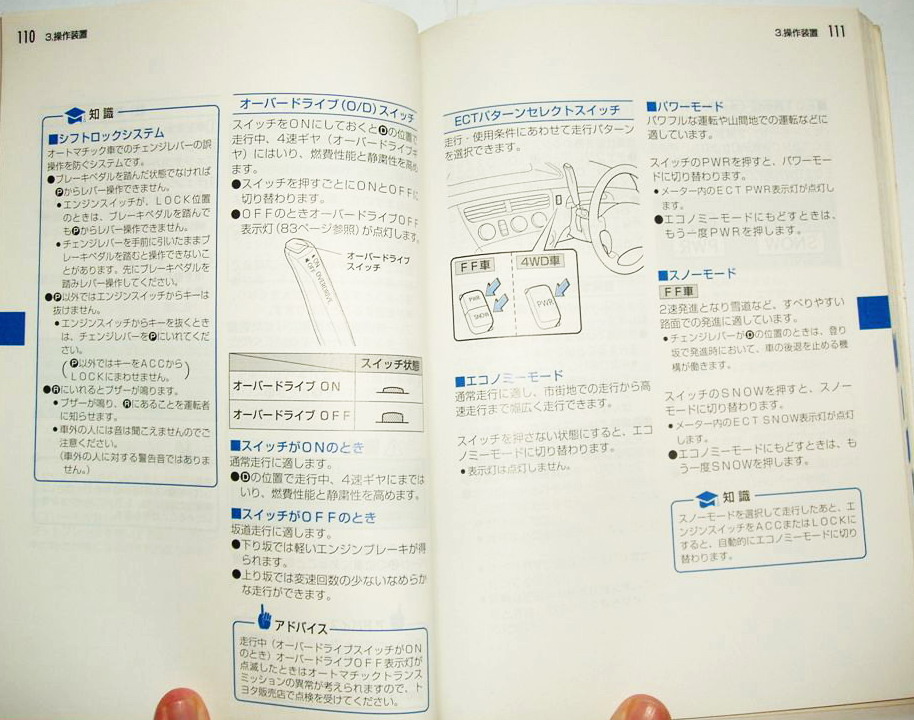 110 3.操作装置
知識
■シフトロックシステム
オートマチック車でのチェンジレバーの誤
操作を防ぐシステムです。
●ブレーキペダルを踏んだ状態でなければ
Ⓟからレバー操作できません。
•エンジンスイッチが、LOCK位置
のときは、ブレーキペダルを踏んで
もⓅからレバー操作できません。
•チェンジレバーを手前に引いたままブ
レーキペダルを踏むと操作できないこ
とがあります。先にブレーキペダルを
踏みレバー操作してください。
●Ⓟ以外ではエンジンスイッチからキーは
抜けません。
•エンジンスイッチからキーを抜くとき
は、チェンジレバーをⓅにいれてくだ
さい。
(Ⓟ以外ではキーをACCから
LOCKにまわせません。)
●Ⓡにいれるとブザーが鳴ります。
•ブザーが鳴り、Ⓡにあることを運転者
に知らせます。
•車外の人には音は聞こえませんのでご
注意ください。
(車外の人に対する警告音ではありま
せん。)
オーバードライブ(O/D)スイッチ
スイッチをONにしておくとⒹの位置で
走行中、4速ギヤ(オーバードライブギ
ヤ)にはいり、燃費性能と静粛性を高め
ます。
●スイッチを押すごとにONとOFFに
切り替わります。
●OFFのときオーバードライブOFF
表示灯(83ページ参照)が点灯します。
オーバードライブ
スイッチ
ON
OFF OVERDRIVE
スイッチ状態
オーバードライブ ON
オーバードライブ OFF
■スイッチがONのとき
通常走行に適します。
●Ⓓの位置で走行中、4速ギヤにまでは
いり、燃費性能と静粛性を高めます。
■スイッチがOFFのとき
坂道走行に適します。
●下り坂では軽いエンジンブレーキが得
られます。
●上り坂では変速回数の少ないなめらか
な走行ができます。
アドバイス
走行中(オーバードライブスイッチがON
のとき)オーバードライブOFF表示灯が
点滅したときはオートマチックトランス
ミッションの異常が考えられますので、ト
ヨタ販売店で点検を受けてください。
3.操作装置 111
ECTパターンセレクトスイッチ
走行・使用条件にあわせて走行パターン
を選択できます。
FF車
4WD車
PWR
SNOW
PWR
■エコノミーモード
通常走行に適し、市街地での走行から高
速走行まで幅広く走行できます。
スイッチを押さない状態にすると、エコ
ノミーモードに切り替わります。
•表示灯は点灯しません。
■パワーモード
パワフルな運転や山間地での運転などに
適しています。
スイッチのPWRを押すと、パワーモー
ドに切り替わります。
•メーター内のECT PWR表示灯が点灯し
ます。
●エコノミーモードにもどすときは、
もう一度PWRを押します。
■スノーモード
FF車
2速発進となり雪道など、すべりやすい
路面での発進に適しています。
•チェンジレバーがⒹの位置のときは、登り
坂で発進時において、車の後退を止める機
構が働きます。
スイッチのSNOWを押すと、スノー
モードに切り替わります。
•メーター内のECT SNOW表示灯が点灯
します。
●エコノミーモードにもどすときは、も
う一度SNOWを押します。
知識
スノーモードを選択して走行したあと、エ
ンジンスイッチをACCまたはLOCKに
すると、自動的にエコノミーモードに切り
替わります。